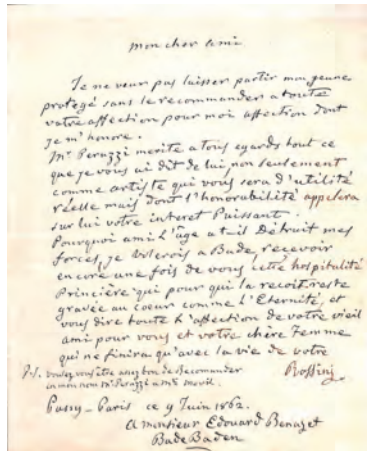 mon cher ami
Je ne veux pas laisser partir mon jeune
protegé sans le recommander a toute
votre affection pour moi affection dont
je m'honore.
Mr Peruzzi merite a tous egards tout ce
que je vous ai dit de lui, non seulement
comme artiste qui vous sera d'utilité
réelle mais dont l'honorabilité appelera
sur lui votre interet Puissant.
Pourquoi ami l'âge a t-il Détruit mes
forces, je volerois a Bade, recevoir
encore une fois de vous cette hospitalité
Princière qui pour qui la recoit reste
gravée au coeur comme l'Eternité, et
vous dire toute l'affection de votre vieil
ami pour vous et votre chère Femme
qui ne finira qu'avec la vie de votre
Rossini
P.S. voulez vous être assez bon de Recomander
en mon nom Mr Peruzzi a
Passy-Paris ce 9 Juin 1862.
A monsieur Edouard Benazet
Bade Baden